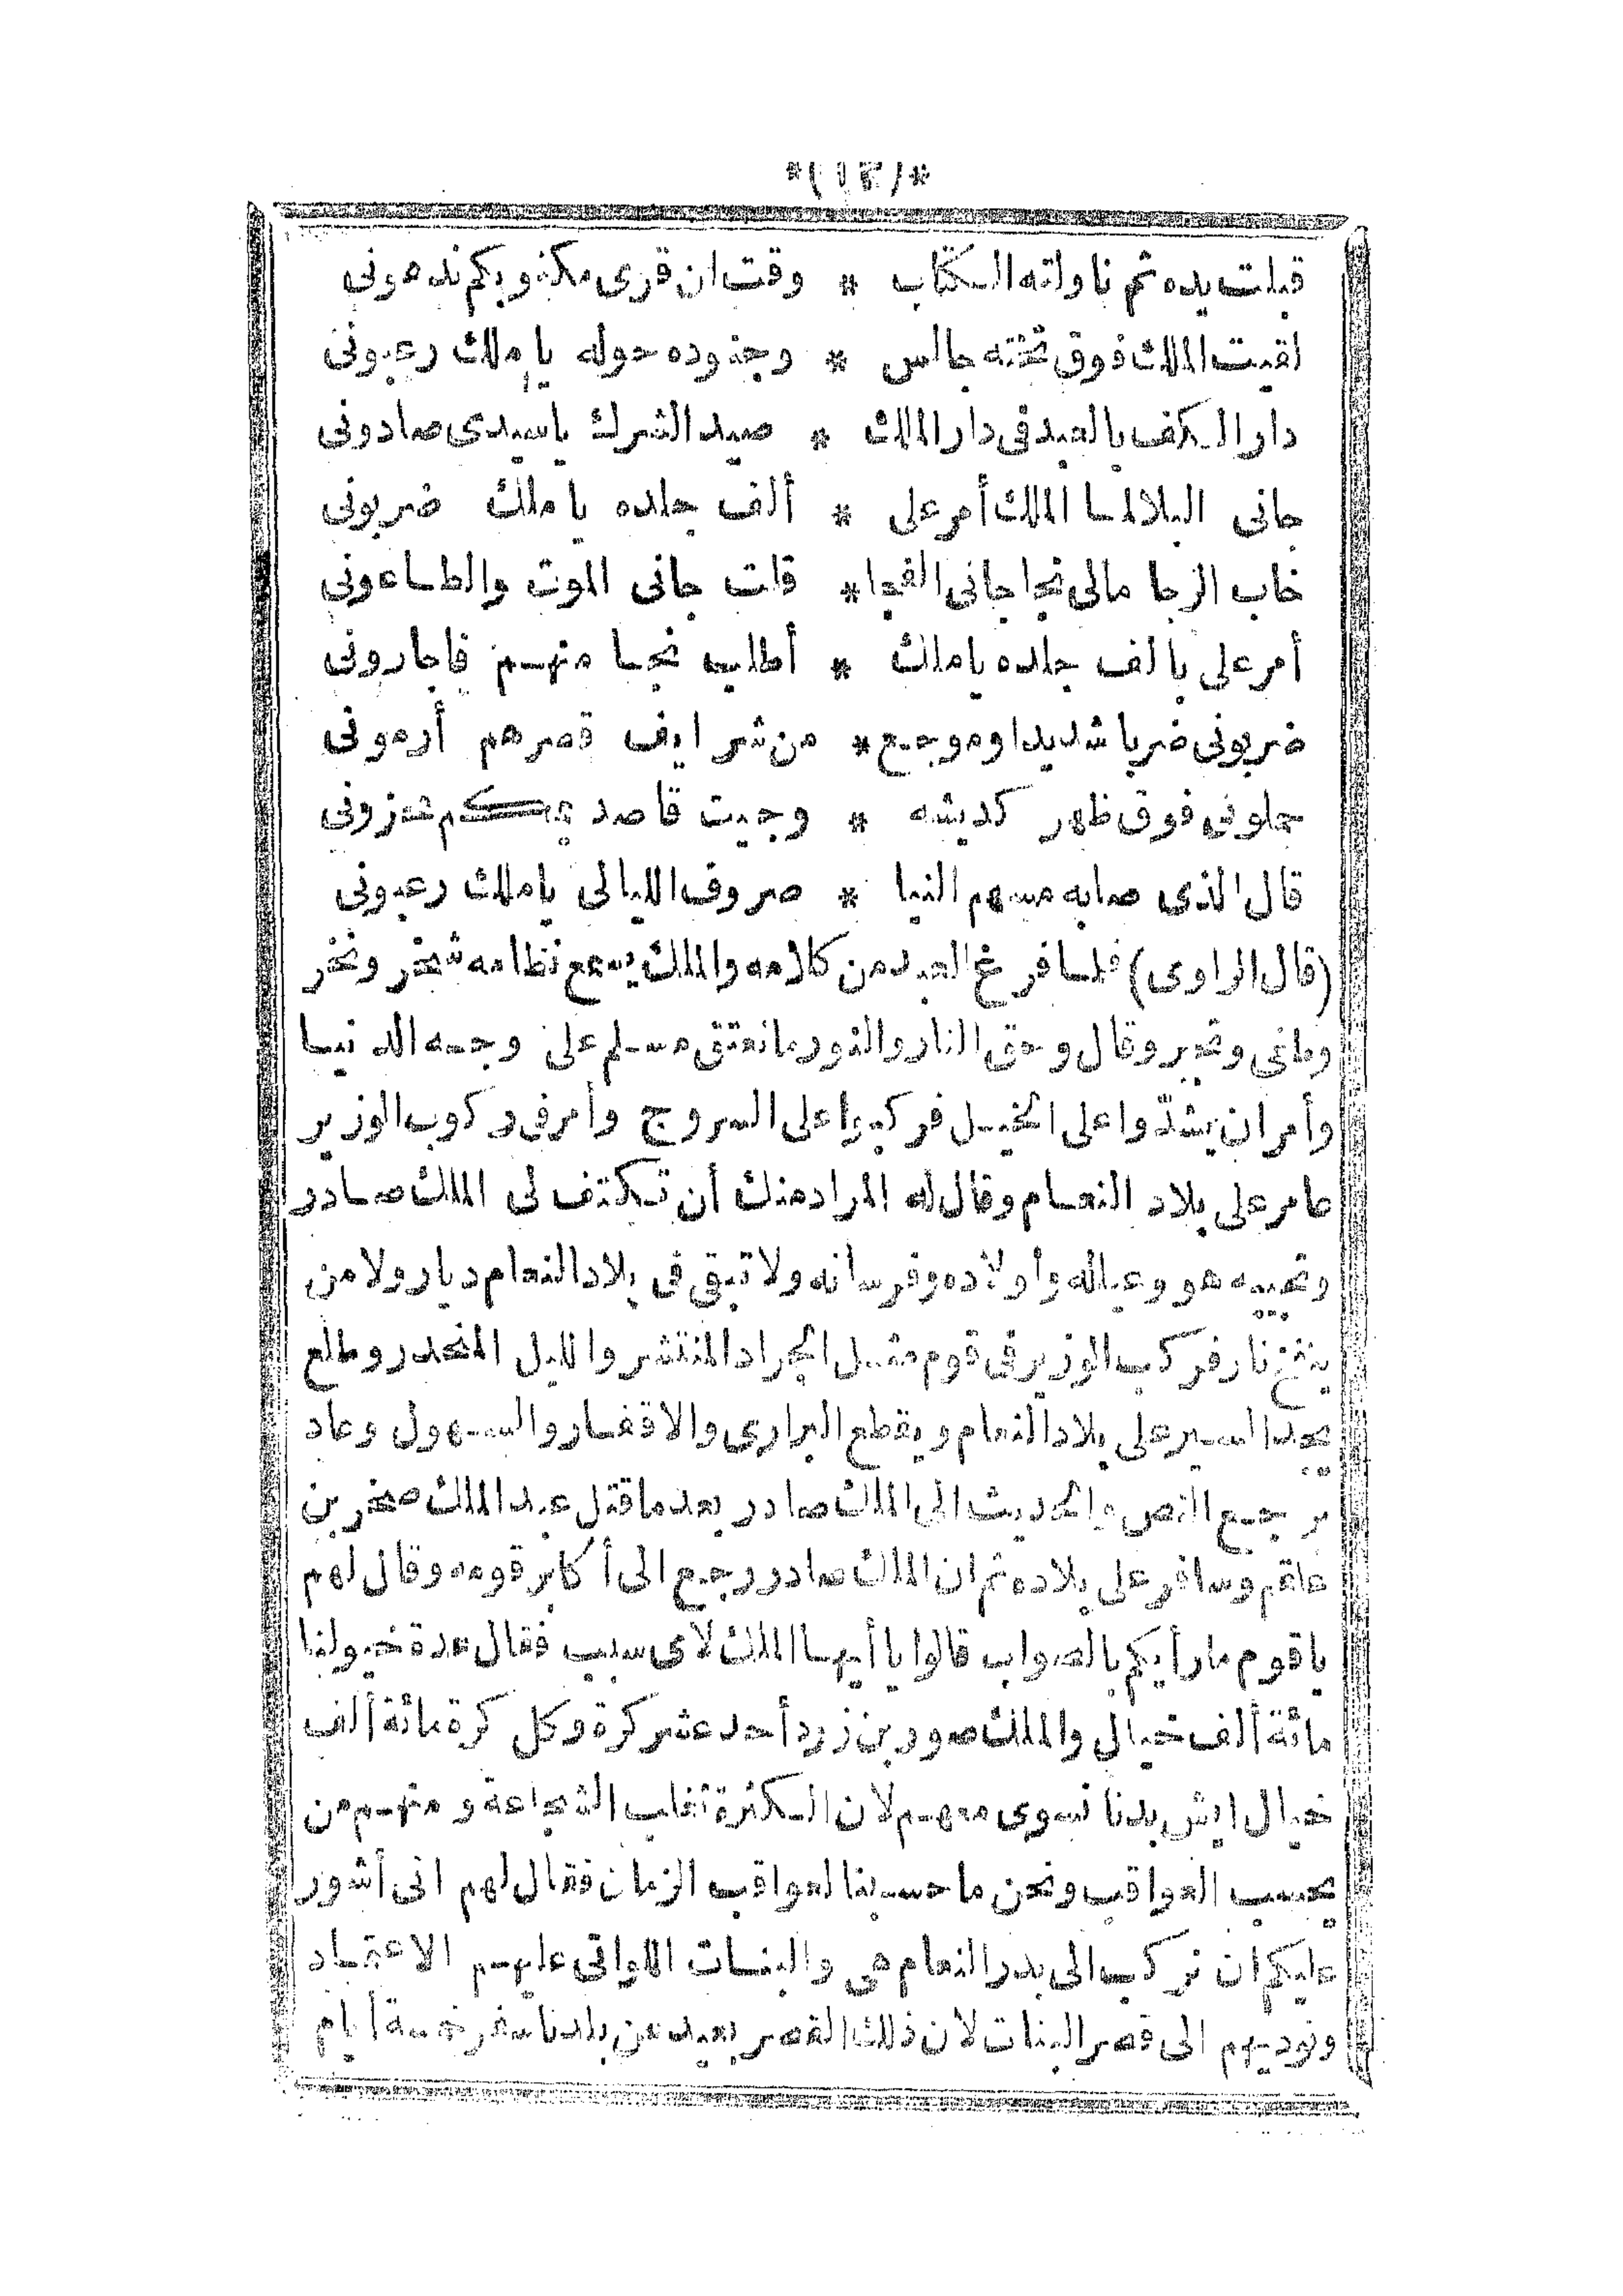 *(١٣)*
قبلت يده ثم ناولته الكتاب * وقت ان قرى مكتوبكم ندهونى
لقيت الملك فوق تخته جالس * وجنوده حوله يا ملك رعبونى
دار الكف بالعبد فى دار الملك * صيد الشرك ياسيدى صادونى
جانى البلا لما الملك أمر على * ألف جلده يا ملك ضربونى
خاب الرجا مالى نجا جانى الفجا * قلت جانى الموت والطاعونى
أمر على بالف جلده ياملك * أطلب نجا منهم فاجارونى
ضربونى ضربا شديدا وموجع * من شرايف قصرهم أرمونى
حملونى فوق ظهر كديشه * وجيت قاصد يمكم تعزونى
قال الذى صابه سهم النيا * صروف الليالى ياملك رعبونى
(قال الراوى) فلما فرغ العبد من كلامه والملك يسمع نظامه شخر ونخر
وطغى وتجبر وقال وحق النار والنور مانعتق مسلم على وجه الدنيا
وأمر ان يشدّوا على الخيل فركبوا على السروج وأمر فى ركوب الوزير
عامر على بلاد النعام وقال له المراد منك أن تكتف لى الملك صادر
وتجيبه هو وعياله وأولاده وفرسانه ولا تبقى فى بلاد النعام ديار ولا من
ينفخ نار فركب الوزير فى قوم مثل الجراد المنتشر والليل المنحدر وطلع
يجدا السير على بلاد النعام ويقطع البرارى والاقفار والسهول وعاد
يرجع النص والحديث الى الملك صادر بعد ما قتل عبد الملك صخر بن
علقم وسافر على بلاده ثم ان الملك صادر رجع الى أكابر قومه وقال لهم
ياقوم مارأيكم بالصواب قالوا ياأيها الملك لاى سبب فقال عدة خيولنا
مائة ألف خيال والملك صور بن زرد أحد عشر كرة وكل كرة مائة ألف
خيال ايش بدنا نسوى معهم لان الكثرة تغلب الشجاعة ومنهم من
يحسب العواقب ونحن ما حسبنا لعواقب الزمان فقال لهم انى أشور
عليكم ان نركب الى بدر النعام هى والبنات اللواتى عليهم الاعتماد
ونوديهم الى قصر البنات لان ذلك القصر بعيد عن بلدنا سفر خمسة أيام